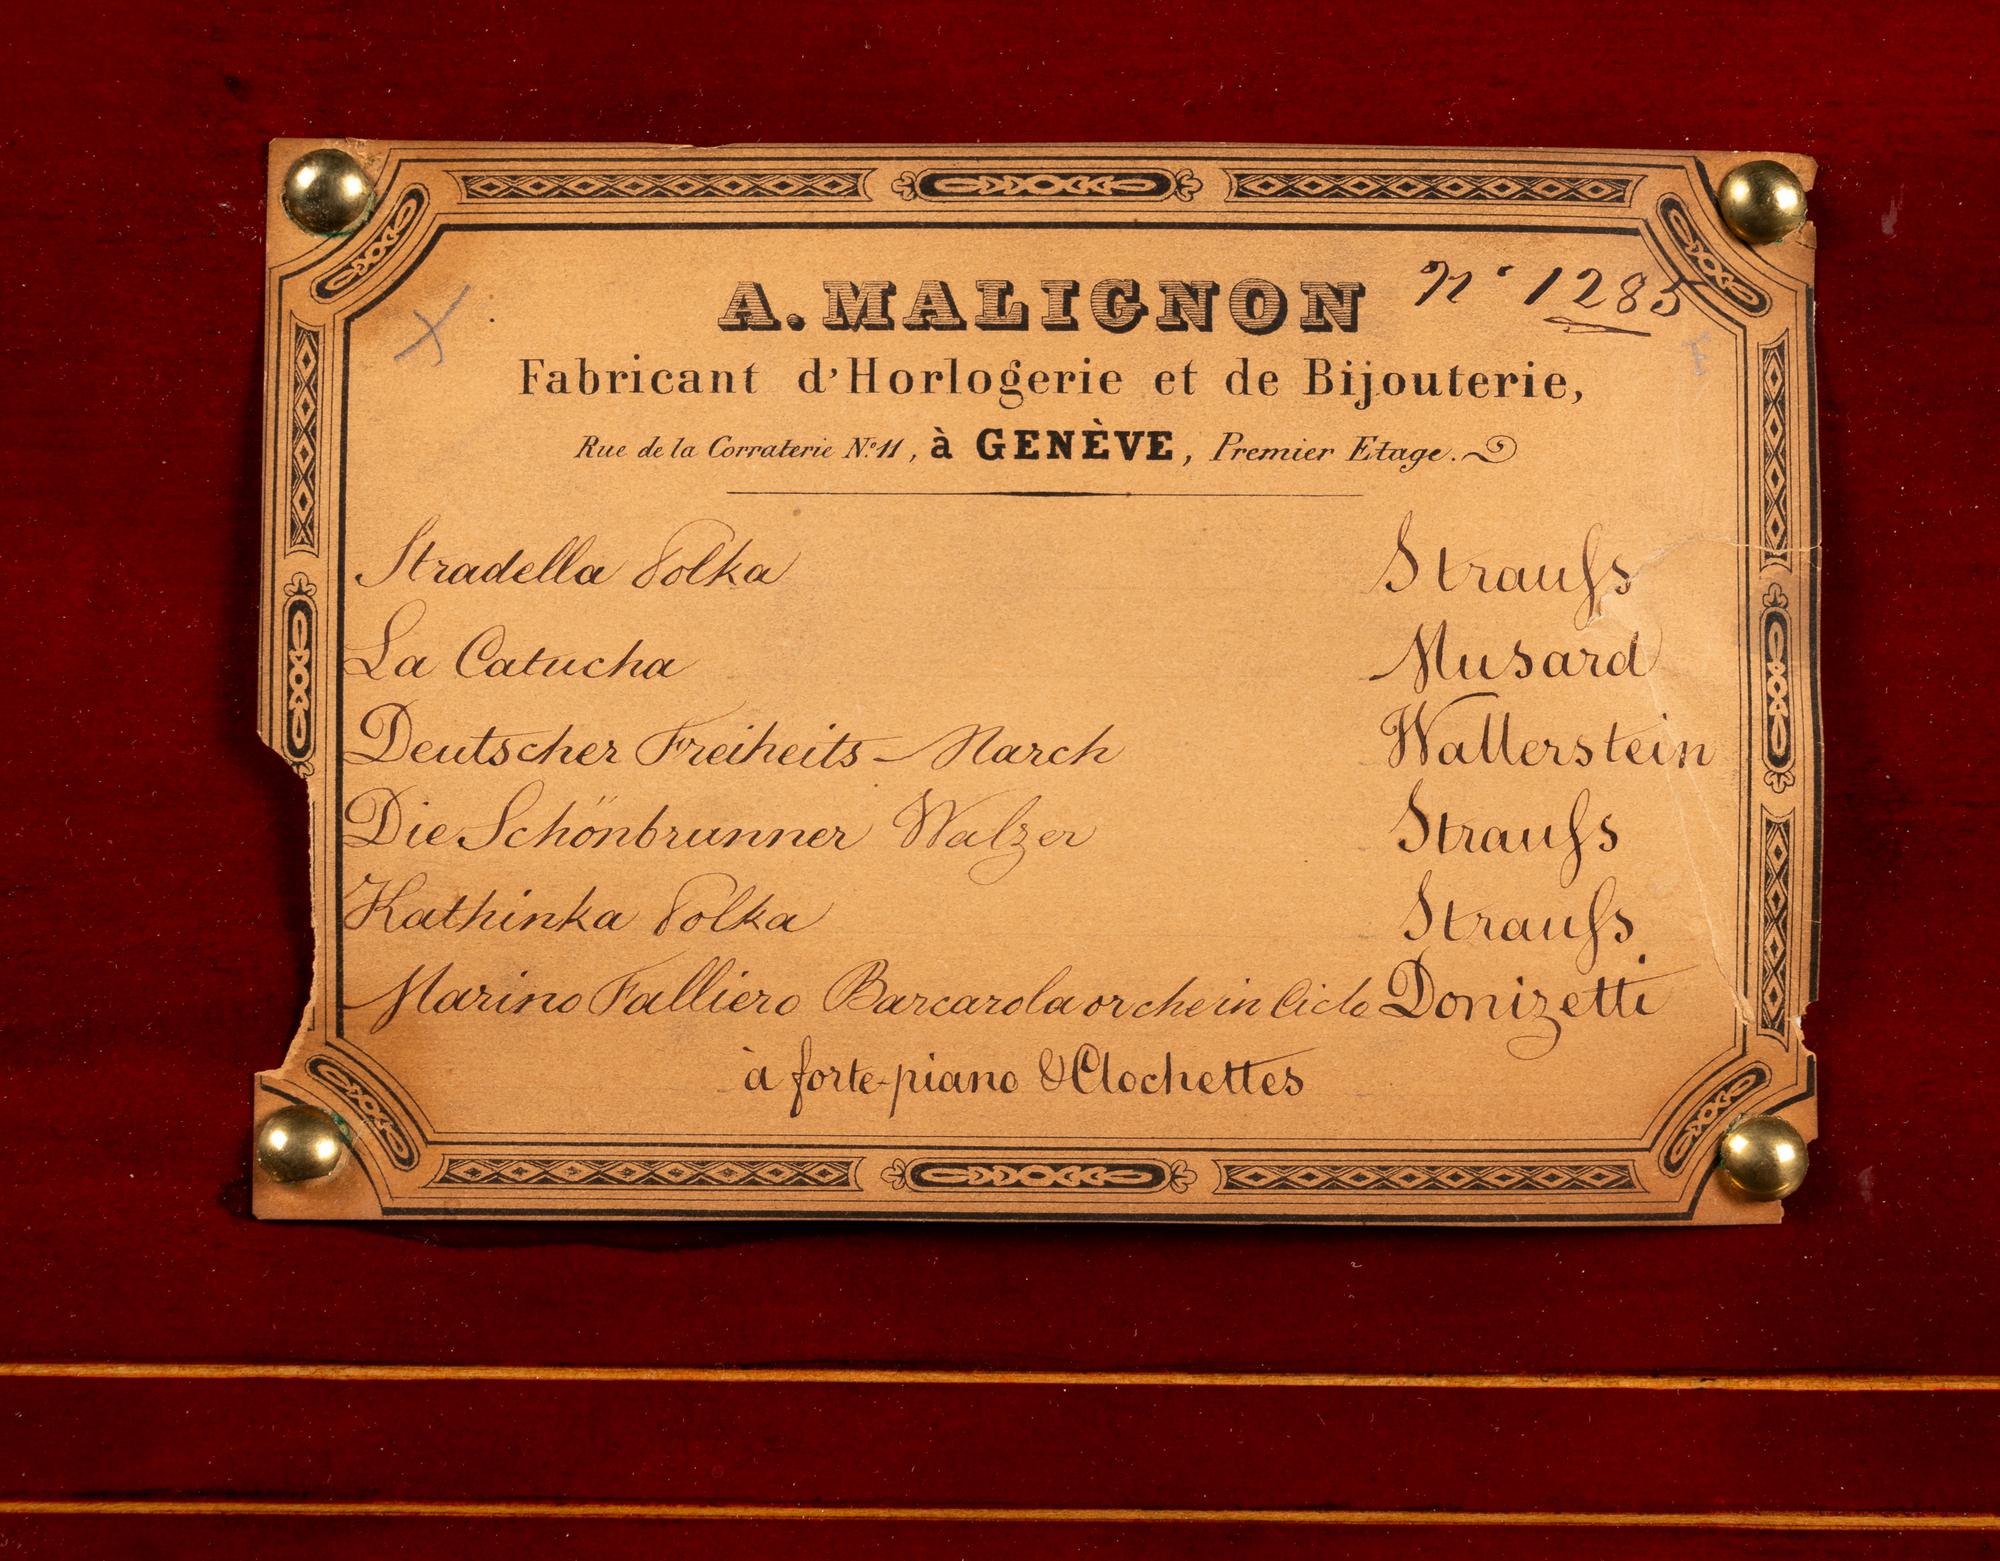 A. MALIGNON N° 1285
Fabricant d'Horlogerie et de Bijouterie,
Rue de la Corraterie N.° 11, à GENÈVE, Premier Etage.
Stradella Polka Strauſs
La Catucha Musard
Deutscher Freiheits-March Wallerstein
Die Schönbrunner Walzer Strauſs
Kathinka Polka Strauſs
Marino Falliero Barcarola or che in Ciclo Donizetti
à forte-piano & Clochettes